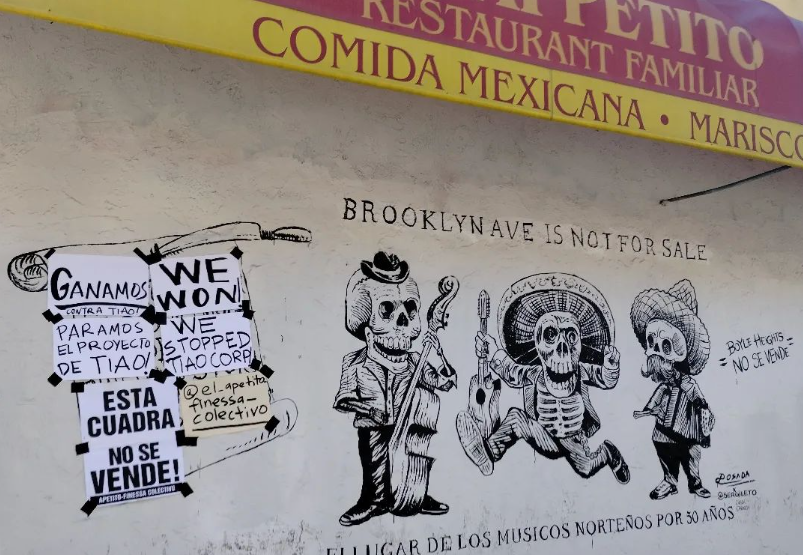 APETITO
RESTAURANT FAMILIAR
COMIDA MEXICANA • MARISCO
BROOKLYN AVE IS NOT FOR SALE
GANAMOS
CONTRA TIAO!
PARAMOS
EL PROYECTO
DE TIAO!
WE
WON
WE
STOPPED
TIAO CORP
@el_apetito
finessa_
colectivo
ESTA
CUADRA
NO SE
VENDE!
APETITO-FINESSA COLECTIVO
BOYLE HEIGHTS
NO SE VENDE
POSADA
EL LUGAR DE LOS MUSICOS NORTEÑOS POR 50 AÑOS